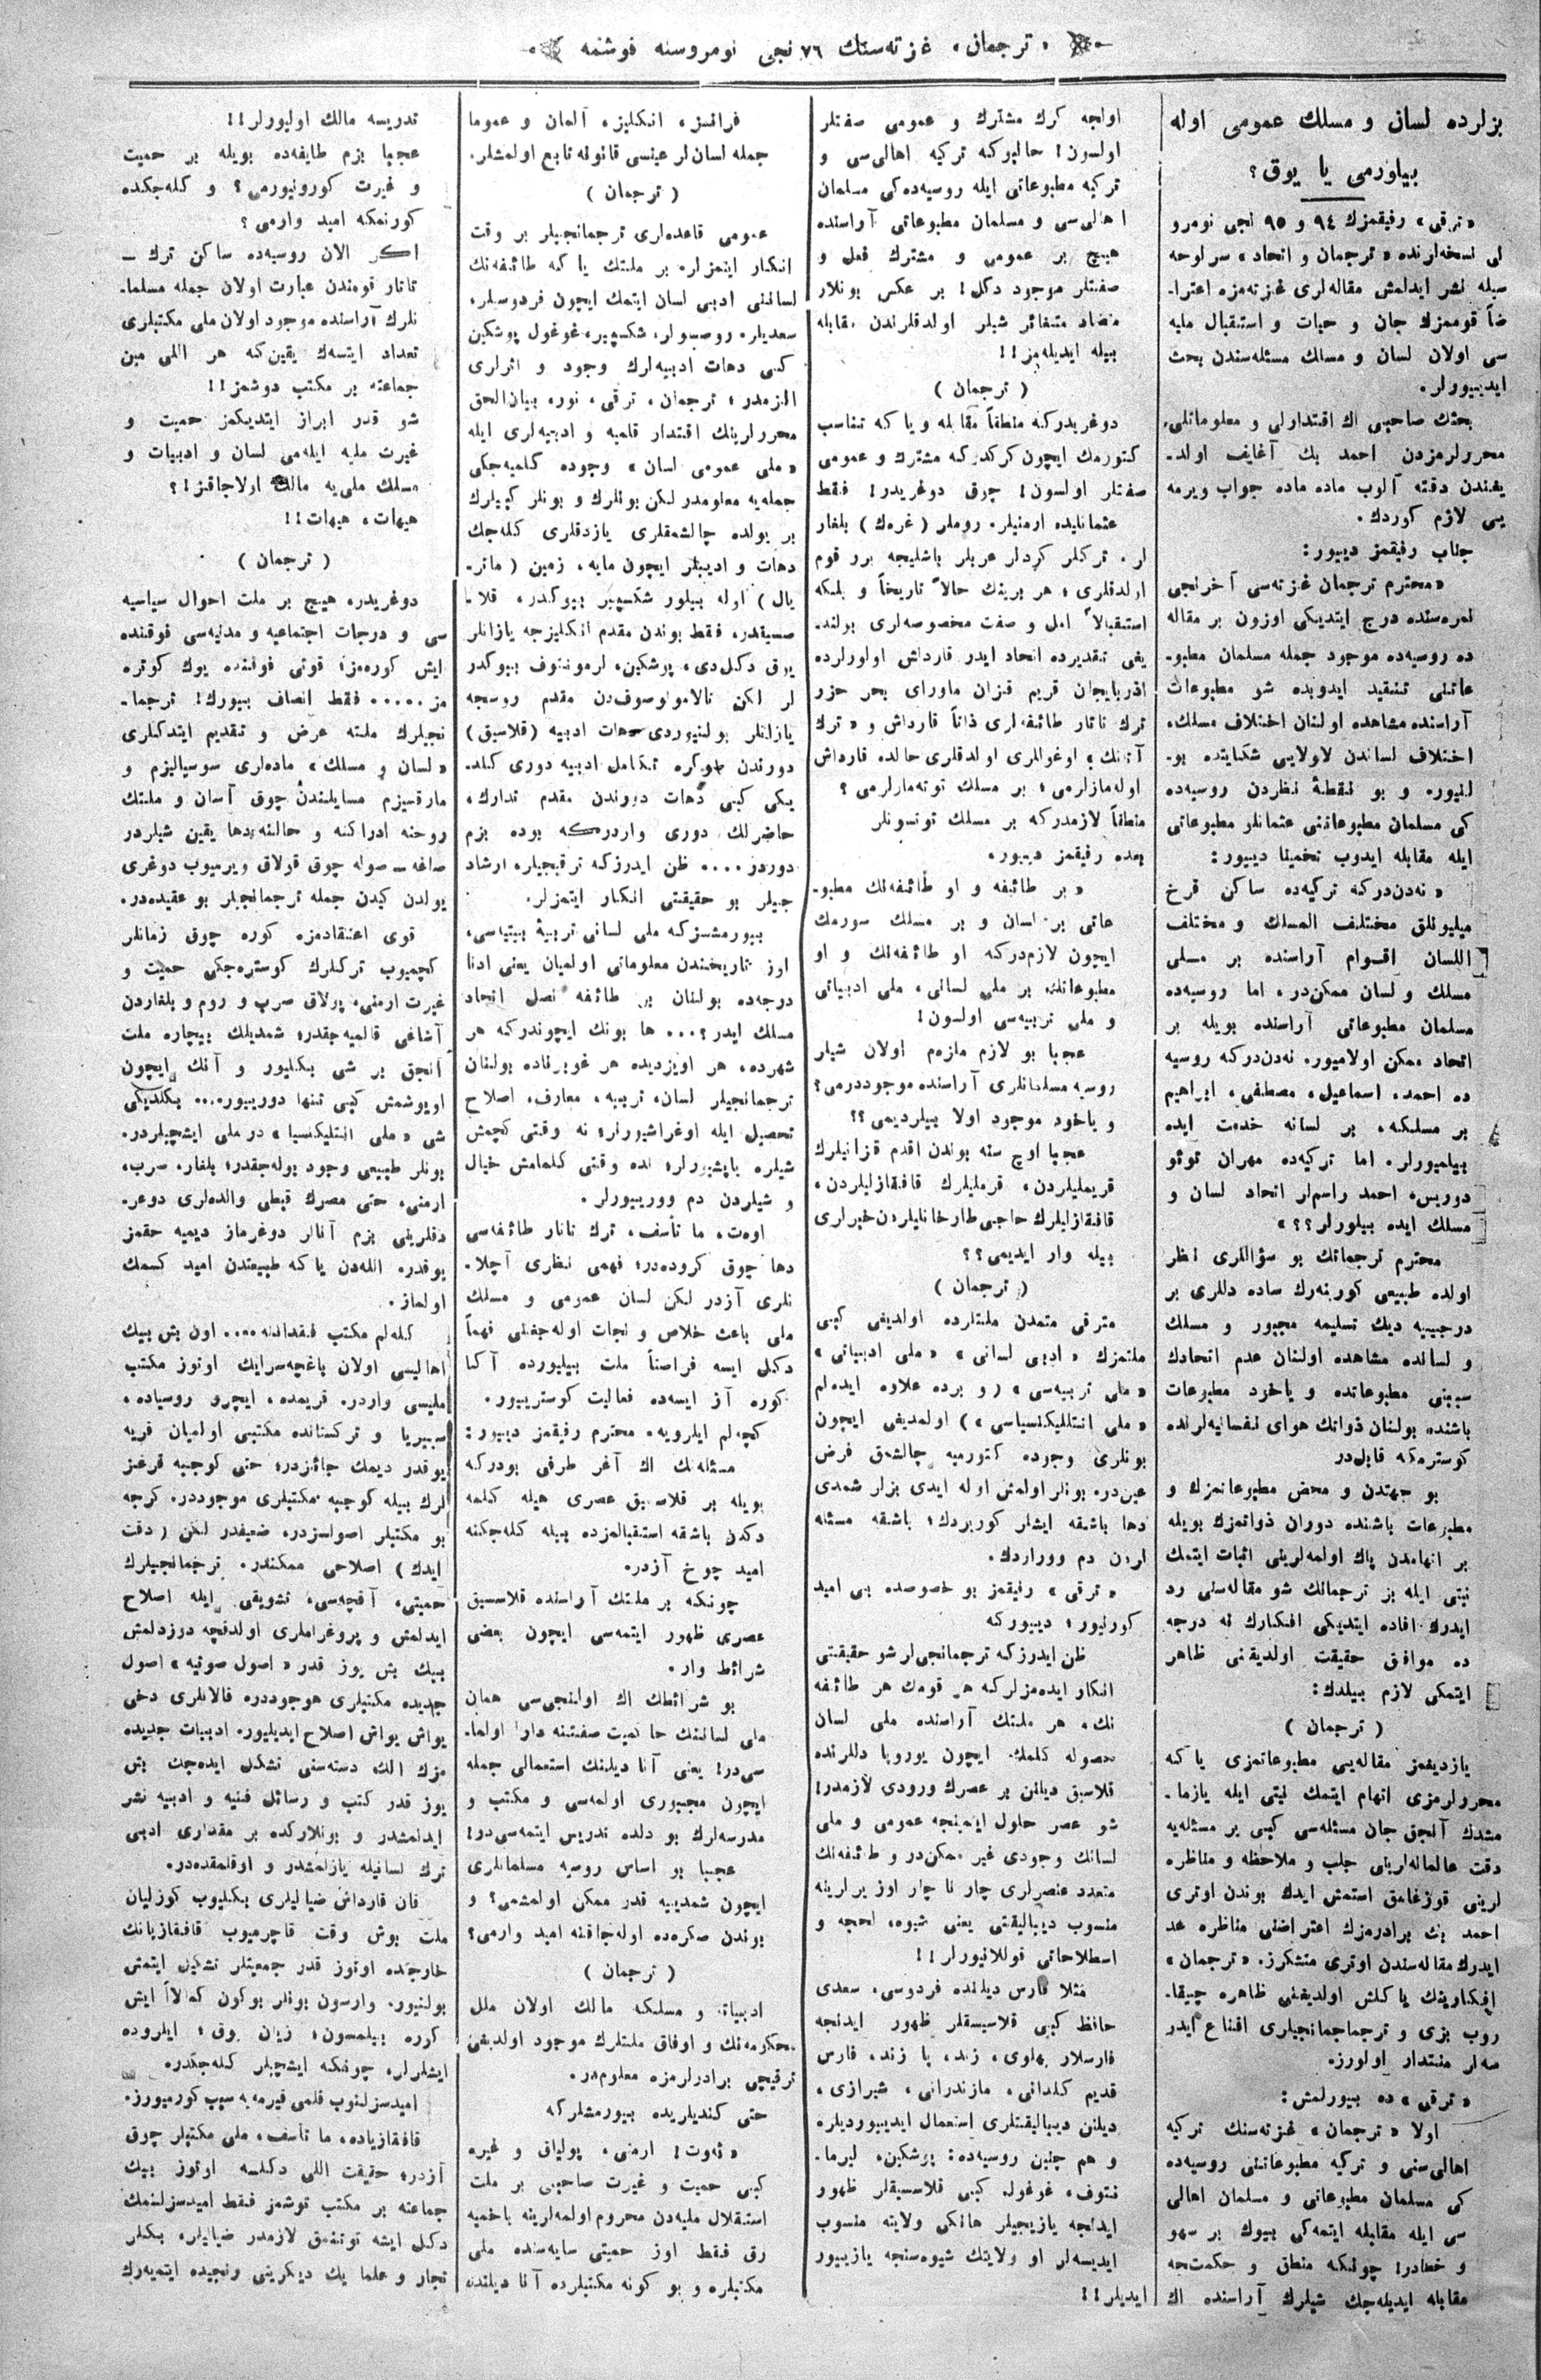 « ترجمان » غزته‌سنك ۷٦ نجی نومروسنه قوشمه
بزلرده لسان و مسلك عمومی اوله
بیلورمی یا یوق؟
«ترقی» رفیقمزك ۹٤ و ۹٥ نجی نومرو
لی نسخه‌لرنده «ترجمان و اتحاد» سرلوحه
سیله نشر ایدلمش مقاله‌لری غزته‌مزه اعترا-
ضاً قوممزك جان و حیات و استقبال ملیه
سی اولان لسان و مسلك مسئله‌سندن بحث
ایدییورلر.
بحثك صاحبی اك اقتدارلی و معلوماتلی
محررلرمزدن احمد بك آغایف اولد-
یغندن دقته آلوب ماده ماده جواب ویرمه
یی لازم كوردك.
جناب رفیقمز دییور:
«محترم ترجمان غزته‌سی آخرنجی
نمره‌سنده درج ایتدیكی اوزون بر مقاله
ده روسیه‌ده موجود جمله مسلمان مطبو-
عاتنی تنقید ایدوبده شو مطبوعات
آراسنده مشاهده اولنان اختلاف مسلك،
اختلاف لساندن لاولایی شكایتده بو-
لنیور. و بو نقطهٔ نظردن روسیه‌ده
كی مسلمان مطبوعاتنی عثمانلر مطبوعاتی
ایله مقابله ایدوب تخمینا دییور:
« نه‌دن‌دركه تركیه‌ده ساكن قرخ
میلیونلق مختلف المسلك و مختلف
اللسان اقوام آراسنده بر مسلی
مسلك و لسان ممكن‌در، اما روسیه‌ده
مسلمان مطبوعاتی آراسنده بویله بر
اتحاد ممكن اولامیور. نه‌دن‌دركه روسیه
ده احمد، اسماعیل، مصطفی، ابراهیم
بر مسلكه، بر لسانه خدمت ایده
بیلمیورلر. اما تركیه‌ده مهران توتو
دوریس، احمد راسم‌لر اتحاد لسان و
مسلك ایده بیلورلر؟؟»
محترم ترجمانك بو سؤاللری نظر
اولده طبیعی كورینه‌رك ساده دللری بر
درجه‌یه دیك تسلیمه مجبور و مسلك
و لسانده مشاهده اولنان عدم اتحادك
سببنی مطبوعاتده و یاخود مطبوعات
باشنده بولنان ذواتك هوای نفسانیه‌لرنده
كوسترمكه قابل‌در
بو جهتدن و محض مطبوعاتمزك و
مطبوعات باشنده دوران ذواتمزك بویله
بر اتهامدن پاك اولمه‌لرینی اثبات ایتمك
نیتی ایله بز ترجمانك شو مقاله‌سنی رد
ایدرك افاده ایتدیكی افكارك نه درجه
ده موافق حقیقت اولدیغنی ظاهر
ایتمكی لازم بیلدك:
( ترجمان )
یازدیغمز مقاله‌یی مطبوعاتمزی یاكه
محررلرمزی اتهام ایتمك نیتی ایله یازما-
مشدك آنجق جان مسئله‌سی كبی بر مسئله‌یه
دقت عالمانه‌لرینی جلب و ملاحظه و مناظره
لرینی قوزغامق استمش ایدك بوندن اوتری
احمد بك برادرمزك اعتراضنی مناظره عد
ایدرك مقاله‌سندن اوتری متشكرز. «ترجمان»
افكارینك یاكلش اولدیغنی ظاهره چیقا-
روب بزی و ترجماجمانجیلری اقناع ایدر
سه‌لر منتدار اولورز.
«ترقی» ده بیورلمش:
اولا «ترجمان» غزته‌سنك تركیه
اهالی‌سنی و تركیه مطبوعاتنی روسیه‌ده
كی مسلمان مطبوعاتی و مسلمان اهالی
سی ایله مقابله ایتمه‌كی بیوك بر سهو
و خطادر! چونكه منطق و حكمت‌جه
مقابله ایدیله‌جك شیلرك آراسنده اك
اولجه كرك مشترك و عمومی صفتلر
اولسون! حالبوكه تركیه اهالی‌سی و
تركیه مطبوعاتی ایله روسیه‌ده‌كی مسلمان
اهالی‌سی و مسلمان مطبوعاتی آراسنده
هیچ بر عمومی و مشترك فعل و
صفتلر موجود دكل! بر عكس بونلار
متضاد متغائر شیلر اولدقلرندن مقابله
بیله ایدیله‌مز!!
( ترجمان )
دوغریدركه منطقاً مقابله و یاكه تناسب
كتورمك ایچون كركدركه مشترك و عمومی
صفتلر اولسون! چوق دوغریدر! فقط
عثمانلیده ارمنیلر. روملر (غره‌ك) بلغار
لر. تركلر كردلر عربلر باشلیجه برر قوم
اولدقلری؛ هر برینك حالاً تاریخاً و بلكه
استقبالاً امل و صفت مخصوصه‌لری بولند-
یغی تقدیرده اتحاد ایدر قارداش اولورلرده
اذربایجان قریم قزان ماورای بحر حزر
ترك تاتار طائفه‌لری ذاتاً قارداش و «ترك
آتانك» اوغوللری اولدقلری حالده قارداش
اوله‌مازلرمی؛ بر مسلك توته‌مازلرمی؟
منطقاً لازمدركه بر مسلك توتسونلر
بعده رفیقمز دییور.
« بر طائفه و او طائفه‌نك مطبو-
عاتی بر لسان و بر مسلك سورمك
ایچون لازم‌دركه او طائفه‌نك و او
مطبوعاتك بر ملی لسانی، ملی ادبیاتی
و ملی تربیه‌سی اولسون!
عجبا بو لازم مازوم اولان شیلر
روسیه مسلمانلری آراسنده موجوددرمی؟
و یاخود موجود اولا بیلردیمی؟؟
عجبا اوچ سنه بوندن اقدم قزانیلرك
قریملیلردن، قرملیلرك قافقازلیلردن،
قافقازلیلرك حاجی‌طارخانلیلردن خبرلری
بیله وار ایدیمی؟؟
( ترجمان )
مترقی متمدن ملتلرده اولدیغی كبی
ملتمزك «ادبی لسانی» «ملی ادبیاتی»
«ملی تربیه‌سی» (و برده علاوه ایده‌لم
«ملی انتللیكنسیاسی») اولمدیغی ایچون
بونلری وجوده كتورمیه چالشمق فرض
عین‌در. بونلر اولمش اوله ایدی بزلر شمدی
دها باشقه ایشلر كوریردك؛ باشقه مسئله
لردن دم ووراردك.
«ترقی» رفیقمز بو خصوصده بی امید
كورلیور؛ دییوركه
ظن ایدرزكه ترجمانجی‌لر شو حقیقتی
انكار ایده‌مزلركه هر قومك هر طائفه
نك، هر ملتك آراسنده ملی لسان
حصوله كلمك ایچون یوروپا دللرنده
قلاسیق دیلن بر عصرك ورودی لازمدر!
شو عصر حلول ایتمینجه عمومی و ملی
لسانك وجودی غیر ممكن‌در و طائفه‌نك
متعدد عنصرلری چار نا چار اوز یرلرینه
منسوب دیپالیقتی یعنی شیوه، لحجه و
اسطلاحاتی قوللانیورلر!!
مثلا فارس دیلنده فردوسی، سعدی
حافظ كبی قلاسیسقلر ظهور ایدنجه
فارسلار پهلوی، زند، پا زند، فارس
قدیم كلدانی، مازندرانی، شیرازی،
دیلن دیپالیقتلری استعمال ایدییوردیلر.
و هم چنین روسیه‌ده: پوشكین، لیرما-
نتوف، غوغول كبی قلاسیسقلر ظهور
ایدنجه یازیجیلر هانكی ولایته منسوب
ایدیسه‌لر او ولایتك شیوه‌سنجه یازییور
ایدیلر!!
فرانسز، انكلیز، آلمان و عموما
جمله لسان‌لر عینی قانونه تابع اولمشلر.
( ترجمان )
عمومی قاعده‌لری ترجمانجیلر بر وقت
انكار ایتمزلر. بر ملتك یا كه طائفه‌نك
لساننی ادبی لسان ایتمك ایچون فردوسیلر،
سعدیلر. روسسولر، شكسپیر، غوغول پوشكین
كبی دهات ادبیه‌لرك وجود و اثرلری
الزمدر؛ ترجمان، ترقی، نور، بیان‌الحق
محررلرینك اقتدار قلمیه و ادبیه‌لری ایله
«ملی عمومی لسان» وجوده كلمیه‌جكی
جمله‌یه معلومدر لكن بونلرك و بونلر كبیلرك
بر یولده چالشمقلری یازدقلری كله‌جك
دهات و ادیبلر ایچون مایه، زمین (ماتر-
یال) اوله بیلور شكسپیر بیوكدر، قلا-
سیقدر، فقط بوندن مقدم انكلیزجه یازانلر
یوق دكل‌دی، پوشكین، لرمونتوف بیوكدر
لر لكن تالامونوسوف‌دن مقدم روسجه
یازانلر بولنیوردی دهات ادبیه (قلاسیق)
دورندن صوكره تكامل ادبیه دوری كلد-
یكی كبی دهات دوروندن مقدم تدارك،
حاضرلك دوری واردركه بوده بزم
دوردر.... ظن ایدرزكه ترقیجیلر، ارشاد
جیلر بو حقیقتی انكار ایتمزلر.
بیورمشسزكه ملی لسانی تربیهٔ بیتیه‌سی،
اوز تاریخندن معلوماتی اولمیان یعنی ادنا
درجه‌ده بولنان بر طائفه نصل اتحاد
مسلك ایدر؟... ها بونك ایچوندركه هر
شهرده، هر اویزدیده هر غوبرناده بولنان
ترجمانجیلر لسان، تربیه، معارف، اصلاح
تحصیل ایله اوغراشیورلر؛ نه وقتی كچمش
شیلره یاپشیورلر؛ نده وقتی كلمامش خیال
و شیلردن دم وورییورلر.
اوت، ما تأسف، ترك تاتار طائفه‌سی
دها چوق كروده‌در؛ فهمی نظری آچلا-
نلری آزدر لكن لسان عمومی و مسلك
ملی باعث خلاص و نجات اوله‌جغنی فهماً
دكل ایسه فراصتاً ملت بیلیورده آكا
كوره آز ایسه‌ده فعالیت كوستریبور.
كچه‌لم ایلرویه. محترم رفیقمز دییور:
مسئله‌نك اك آغر طرفی بودركه
بویله بر قلاسیق عصری هیله كلمه
دكدن باشقه استقبالمزده بیله كله‌جكنه
امید چوخ آزدر.
چونكه بر ملتك آراسنده قلاسیق
عصری ظهور ایتمه‌سی ایچون بعضی
شرائط وار.
بو شرائطك اك اولنجی‌سی همان
ملی لسانك حاكمیت صفتنه دارا اولما-
سی‌در! یعنی آنا دیلنك استعمالی جمله
ایچون مجبوری اولمه‌سی و مكتب و
مدرسه‌لرك بو دلده تدریس ایتمه‌سی‌در!
عجبا بو اساس روسیه مسلمانلری
ایچون شمدییه قدر ممكن اولمشمی؟ و
بوندن صكره‌ده اوله‌جاقنه امید وارمی؟
( ترجمان )
ادبیاته و مسلكه مالك اولان ملل
محكومه‌نك و اوفاق ملتلرك موجود اولدیغی
ترقیچی برادرلرمزه معلوم‌در.
حتی كندیلریده بیورمشلركه
«نه‌وت! ارمنی، پولیاق و غیره
كبی حمیت و غیرت صاحبی بر ملت
استقلال ملیه‌دن محروم اولمه‌لرینه باخمیه
رق فقط اوز حمیتی سایه‌سنده ملی
مكتبلره و بو كونه مكتبلرده آنا دیلنده
تدریسه مالك اولیورلر!!
عجبا بزم طایفه‌ده بویله بر حمیت
و غیرت كورونیورمی؟ و كله‌جكده
كورنمكه امید وارمی؟
اكر الان روسیه‌ده ساكن ترك –
تاتار قومندن عبارت اولان جمله مسلما-
نلرك آراسنده موجود اولان ملی مكتبلری
تعداد ایتسه‌ك یقین‌كه هر اللی مین
جماعته بر مكتب دوشمز!!
شو قدر ابراز ایتدیكمز حمیت و
غیرت ملیه ایله‌می لسان و ادبیات و
مسلك ملی‌یه مالك اولاجاقز!؟
هیهات، هیهات!!
( ترجمان )
دوغریدر، هیچ بر ملت احوال سیاسیه
سی و درجات اجتماعیه و مدنیه‌سی فوقنده
ایش كوره‌مز؛ قوتی فوقنده یوك كوتره
مز..... فقط انصاف بیورك! ترجما-
نجیلرك ملته عرض و تقدیم ایتدكلری
«لسان و مسلك» ماده‌لری سوسیالیزم و
مارقسیزم مسایلندن چوق آسان و ملتك
روحنه ادراكنه و حالنه‌دها یقین شیلردر
صاغه – صوله چوق قولاق ویرمیوب دوغری
یولدن كیدن جمله ترجمانجیلر بو عقیده‌در.
قوی اعتقادمزه كوره چوق زمانلر
كچمیوب تركلرك كوستره‌جكی حمیت و
غیرت ارمنی، پولاق صرب و روم و بلغاردن
آشاغی قالمیه‌جقدر؛ شمدیلك بیچاره ملت
آنجق بر شی بكلیور و آنك ایچون
اویوشمش كبی تنها دورییور.... بكلدیكی
شی «ملی انتلیكنسیا» در ملی ایشچیلردر.
بونلر طبیعی وجود بوله‌جقدر؛ بلغار، صرب،
ارمنی، حتی مصرك قبطی والده‌لری دوغر-
دقلرینی بزم آنالر دوغرماز دیمیه حقمز
یوقدر. الله‌دن یاكه طبیعتدن امید كسمك
اولماز.
كله‌لم مكتب فقداننه.... اون بش بیك
اهالیسی اولان باغچه‌سرایك اوتوز مكتب
ملیسی واردر. قریمده، ایچرو روسیاده،
سیبیریا و تركستانده مكتبی اولمیان قریه
یوقدر دیمك جائزدر؛ حتی كوچبه قرغز
لرك بیله كوچبه مكتبلری موجوددر. كرچه
بو مكتبلر اصولسزدر، ضعیفدر لكن (دقت
ایدك) اصلاحی ممكندر. ترجمانجیلرك
حمیتی، آقچه‌سی، تشویقی ایله اصلاح
ایدلمش و پروغراملری اولدقچه دوزدلمش
بیك بش یوز قدر «اصول صوتیه» اصول
جدیده مكتبلری موجوددر. قالانلری دخی
یواش یواش اصلاح ایدیلیور. ادبیات جدیده
مزك الك دسته‌سنی تشكل ایده‌جك بش
یوز قدر كتب و رسائل فنیه و ادبیه نشر
ایدلمشدر و بونلاركده بر مقداری ادبی
ترك لسانیله یازلمشدر و اوقلمقده‌در.
قان قارداش ضیالیلری بكلیوب كوزلیان
ملت بوش وقت قاچرمیوب قافقازیانك
خارجنده اوتوز قدر جمعیتلر تشكیل ایتمش
بولنیور. وارسون بونلر بوكون كمالاً ایش
كوره بیلمسون؛ زیان یوق؛ ایلروده
ایشلرلر، چونكه ایشچیلر كله‌جكدر.
امیدسزلنوب قلمی قیرمه‌یه سبب كورمیورز.
قافقازیاده، ما تأسف، ملی مكتبلر چوق
آزدر، حقیقت اللی دكلسه اوتوز بیك
جماعته بر مكتب توشمز فقط امیدسزلنمك
دكل ایشه توتنمق لازمدر ضیالیلر، بكلر
تجار و علما یك دیكرینی ونجیده ایتمیه‌رك